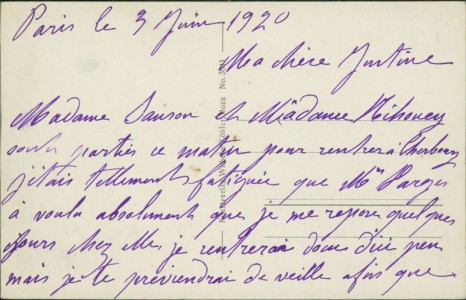 Paris le 3 Juin 1920
Ma chère Justine
Madame Sanson et Madame
sont parties ce matin pour rentrer à Cherbourg
j'étais tellement fatiguée que Mme
à voulu absolument que je me repose quelques
jours chez elle je rentrerai donc d'ici peu
mais je te préviendrai de veille afin que